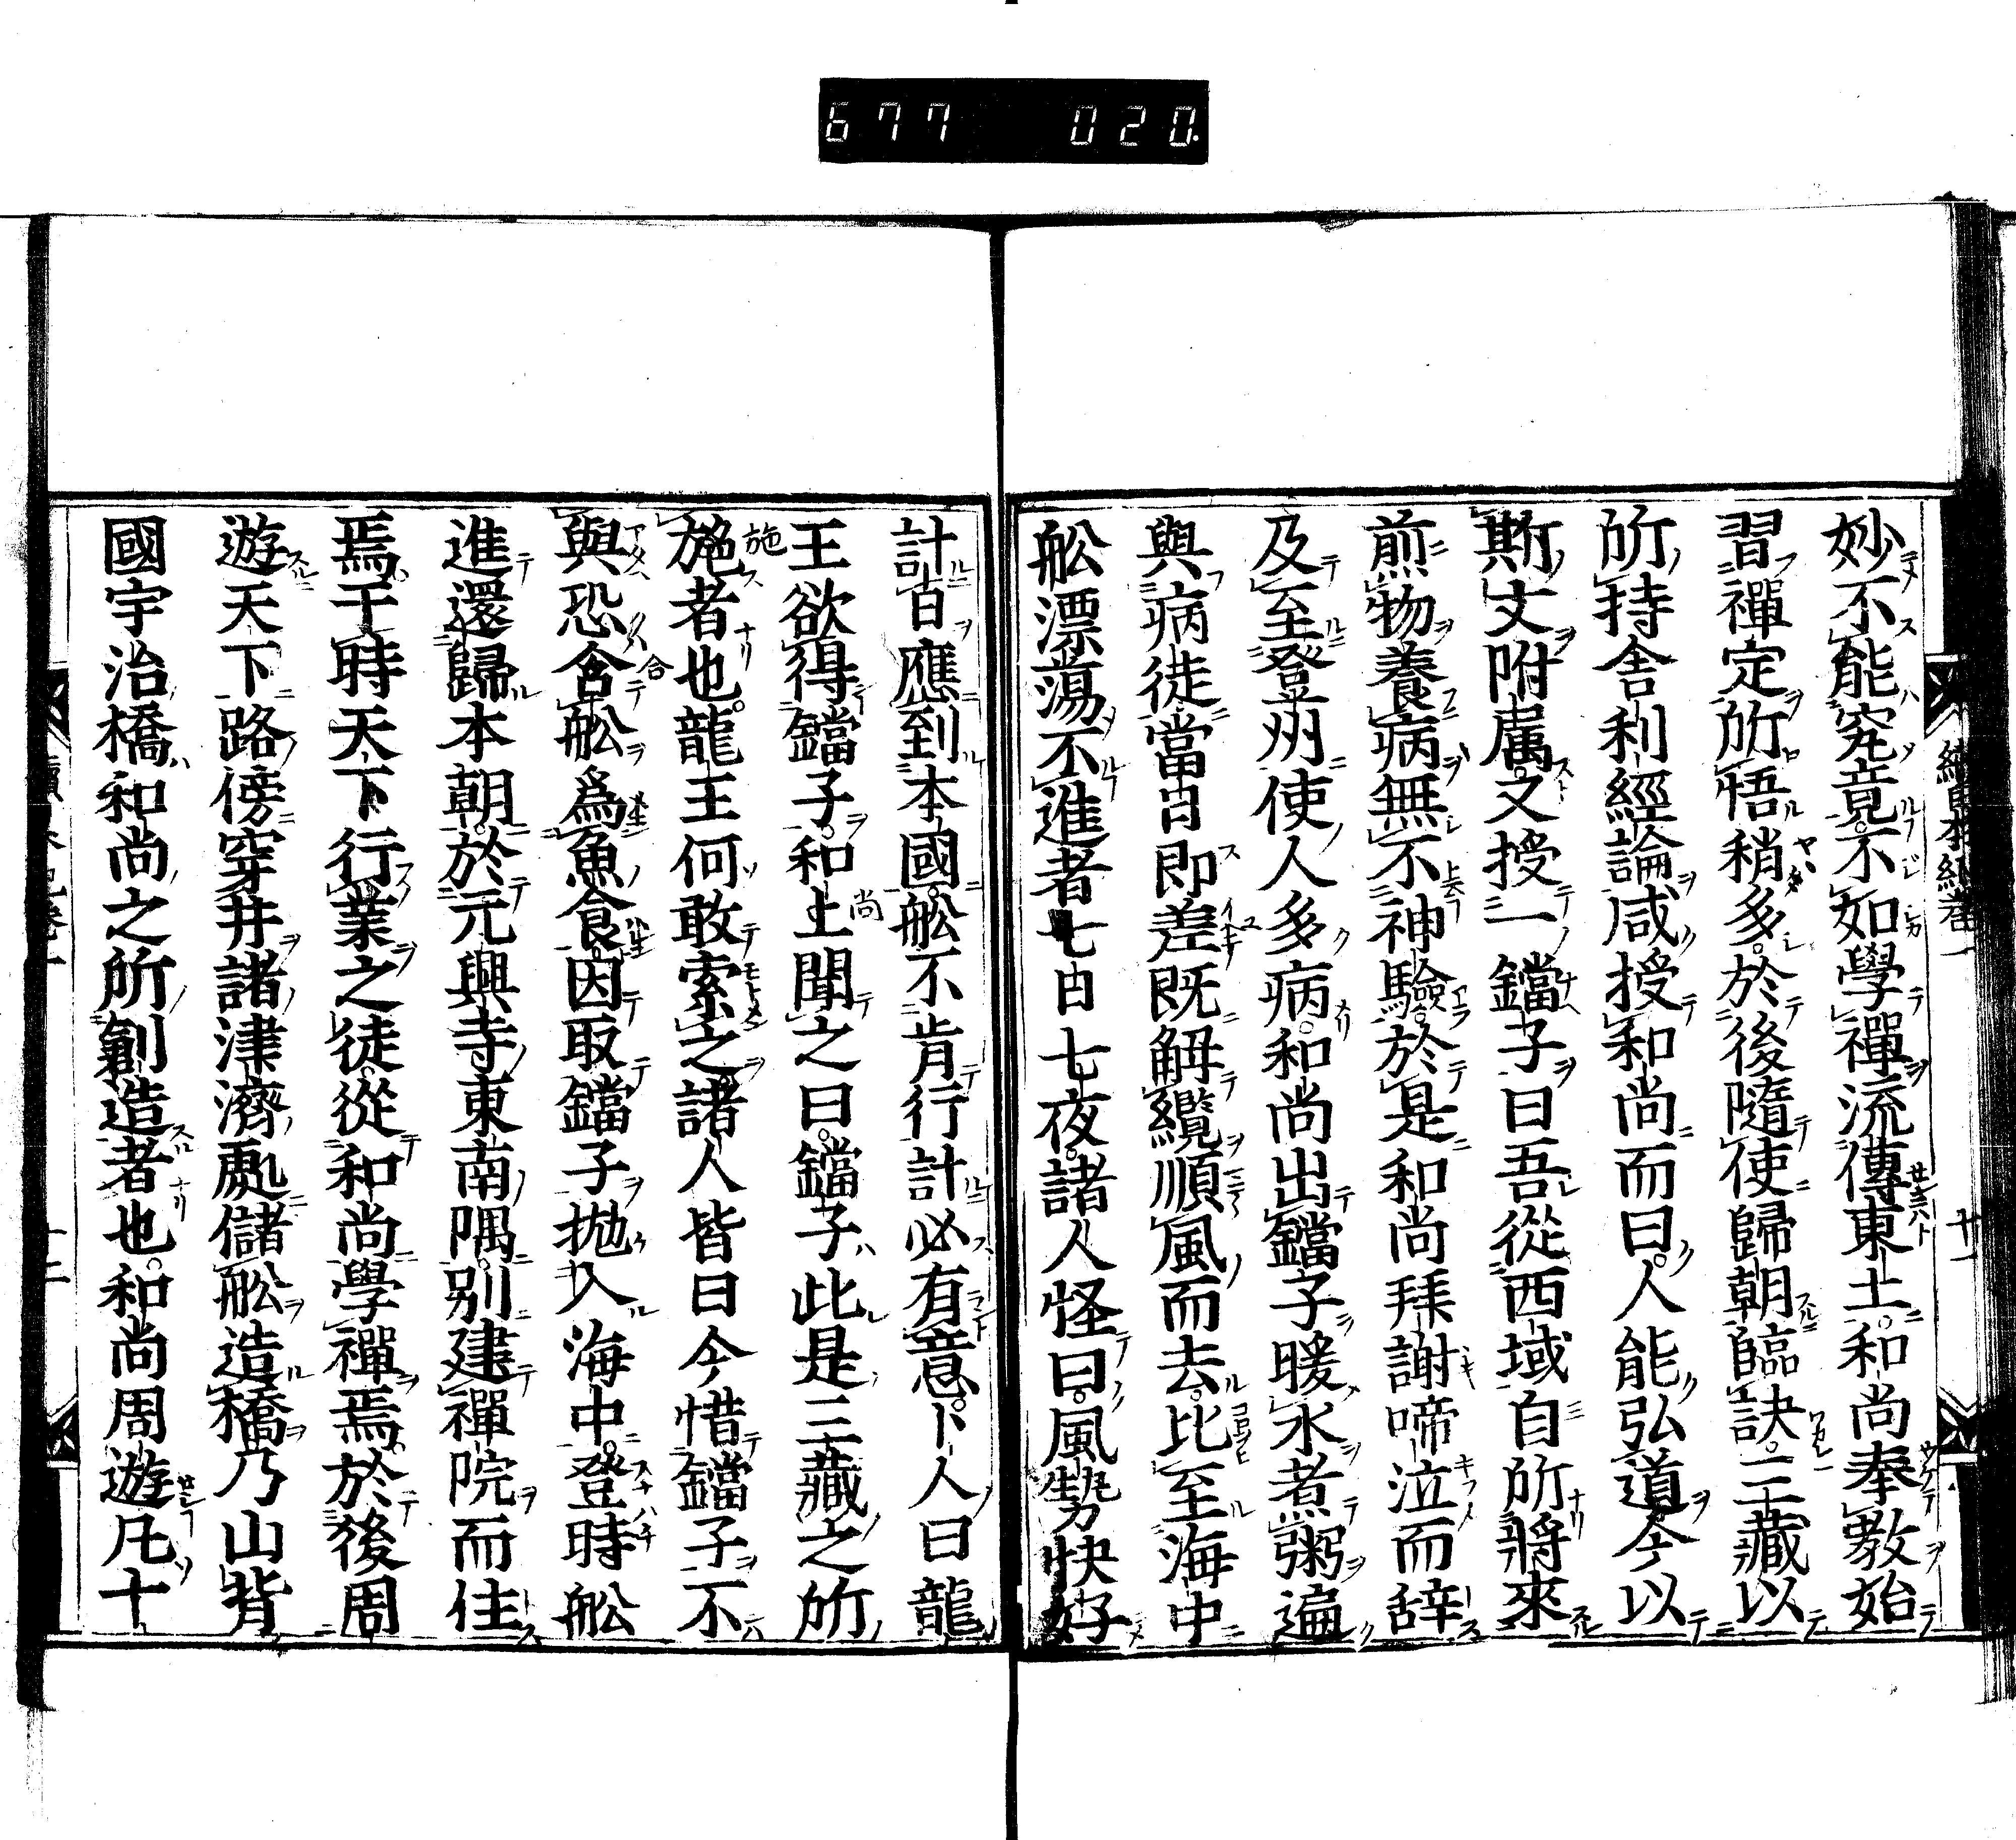 677 020
妙不能究竟不如學禪流傳東土和尚奉敎始
習禪定所悟稍多於後隨使歸朝臨訣三藏以
所持舍利經論咸授和尚而曰人能弘道今以
斯文附属又授一鐺子曰吾從西域自所將來
煎物養病無不神驗於是和尚拜謝啼泣而辞
及至登州使人多病和尚出鐺子暖水煮粥遍
與病徒當日即差既觧纜順風而去比至海中
舩漂蕩不進者七日七夜諸人怪曰風勢快好
計日應到本國舩不肯行計必有意卜人曰龍
王欲得鐺子和上聞之曰鐺子此是三藏之所
施者也龍王何敢索之諸人皆曰今惜鐺子不
與恐含舩爲魚食因取鐺子抛入海中登時舩
進還歸本朝於元興寺東南隅别建禪院而住
焉于時天下行業之徒從和尚學禪焉於後周
遊天下路傍穿井諸津濟處儲舩造橋乃山背
國宇治橋和尚之所創造者也和尚周遊凡十